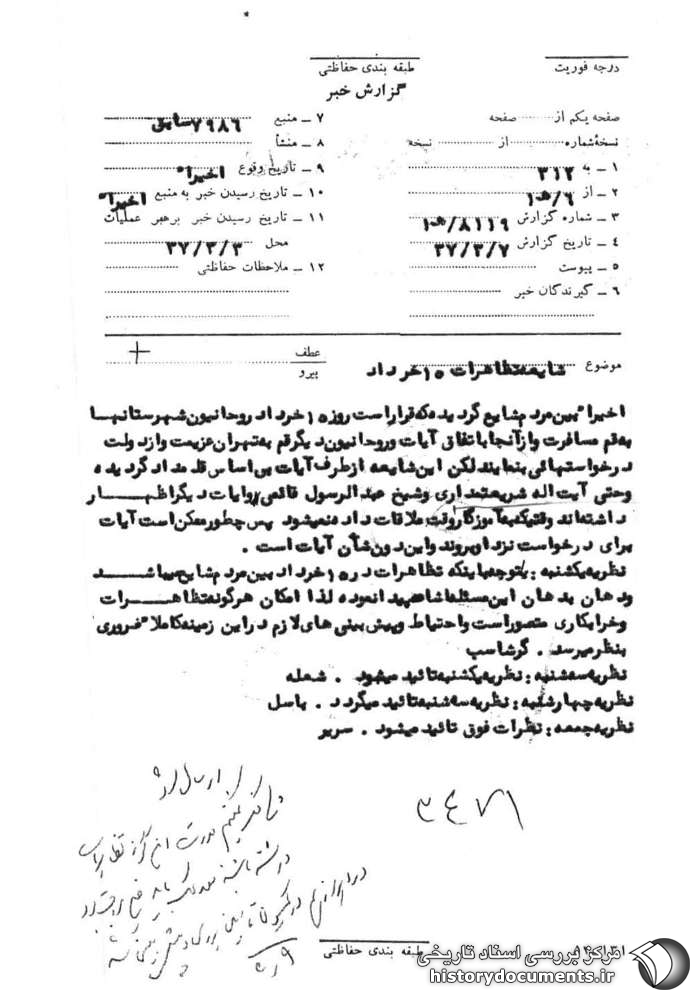 درجه فوریت
طبقه بندی حفاظتی
گزارش خبر
صفحه یکم از صفحه
نسخه شماره از نسخه
۱ ـ به ۳۱۲
۲ ـ از ۶/ﻫ۱
۳ ـ شماره گزارش ۸۱۱۹/ﻫ۱
۴ ـ تاریخ گزارش ۳۷/۳/۷
۵ ـ پیوست
۶ ـ گیرندگان خبر
۷ ـ منبع ۷۹۸۶ سابق
۸ ـ منشأ
۹ ـ تاریخ وقوع اخیرا"
۱۰ ـ تاریخ رسیدن خبر به منبع اخیرا"
۱۱ ـ تاریخ رسیدن خبر برهبر عملیات
محل ۳۷/۳/۳
۱۲ ـ ملاحظات حفاظتی
موضوع شایعه تظاهرات ۱۵ خرداد
عطف
پیرو
اخیرا" بین مردم شایع گردیده که قرار است روز ۱۵ خرداد روحانیون شهرستانها
به قم مسافرت و از آنجا با تفاق آیات و روحانیون دیگر قم به تهران عزیمت و از دولت
درخواستهائی بنمایند لکن این شایعه از طرف آیات بی اساس قلمداد گردیده
وحتی آیت اله شریعتمداری و شیخ عبدالرسول قائمی و آیات دیگر اظهار
داشته اند وقتیکه به آموزگار وقت ملاقات داده نمیشود پس چطور ممکن است آیات
برای درخواست نزد او بروند و این دون شأن آیات است .
نظریه یکشنبه : با توجه باینکه تظاهرات در ۱۵ خرداد بین مردم شایع میباشد
ودهان بدهان این مسئله اشاعه پیدا نموده لذا امکان هرگونه تظاهرات
وخرابکاری متصور است و احتیاط و پیش بینی های لازم در این زمینه کاملا" ضروری
بنظر میرسد . گرشاسب
نظریه سه شنبه : نظریه یکشنبه تائید میشود . شعله
نظریه چهارشنبه : نظریه سه شنبه تائید میگردد . باسل
نظریه جمعه : نظرات فوق تائید میشود . سریر
۳۴۷۱
ارسال شد
طبقه بندی حفاظتی
مرکز بررسی اسناد تاریخی
historydocuments.ir